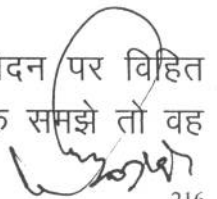 दन पर विहित
समझे तो वह
216